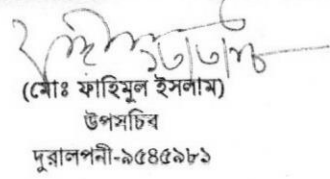 (মোঃ ফাহিমুল ইসলাম)
উপসচিব
দুরালপনী-৯৫৪৫৯৮১